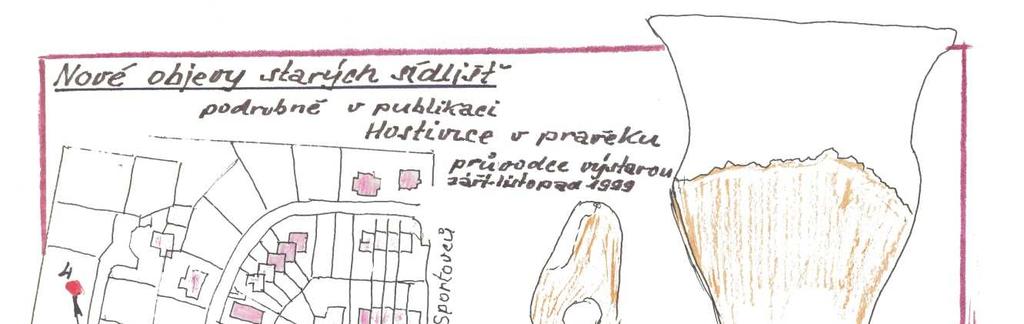 Nové objevy starých sídlišť
podrobně v publikaci
Hostivice v pravěku
průvodce výstavou
září-listopad 1999
Sportovců
4